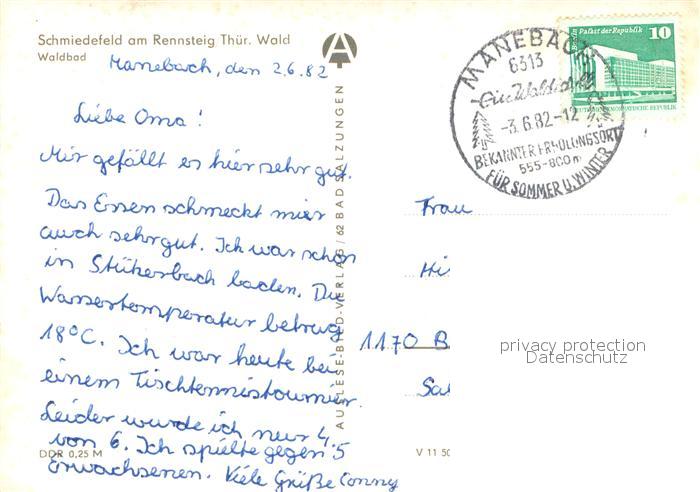 Schmiedefeld am Rennsteig Thür. Wald
Waldbad
Manebach, den 2.6.82
Liebe Oma!
Mir gefällt es hier sehr gut.
Das Essen schmeckt mier
auch sehr gut. Ich war schon
in Stützerbach baden. Die
Wassertemperatur betrug
18°C. Ich war heute bei
einem Tischtennistournier.
Leider wurde ich nur 4.
von 6. Ich spielte gegen 5
Erwachsenen. Viele Grüße Conny
DDR 0,25 M
AUSLESE-BILD-VERLAG / 62 BAD SALZUNGEN
A
MANEBACH
6313
-3.6.82-12
BEKANNTER ERHOLUNGSORT
555-800 m
FÜR SOMMER U. WINTER
Palast der Republik 10
DEUTSCHE DEMOKRATISCHE REPUBLIK
Frau
Hi
1170 B
Sal
V 11 50
privacy protection
Datenschutz